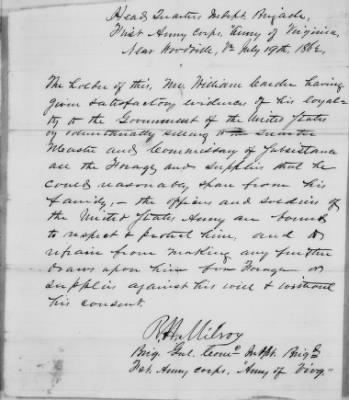 Head Quarters Indept. Brigade,
First Army Corps, Army of Virginia,
Near Woodville, Va July 19th, 1862.
The holder of this, Mr. William Carder having
given satisfactory evidence of his loyal-
ty to the Government of the United States
by voluntarially selling to Quarter
Master and Commissary of Subsistance
all the Forage and supplies that he
could reasonably spare from his
family, – the officers and soldiers of
the United States Army are bound
to respect & protect him, and to
refrain from making any further
draws upon him for Forage or
supplies against his will & without
his consent.
R. H. Milroy
Brig. Genl. Comdg Indpt. Brigd
First Army Corps, "Army of Virg."